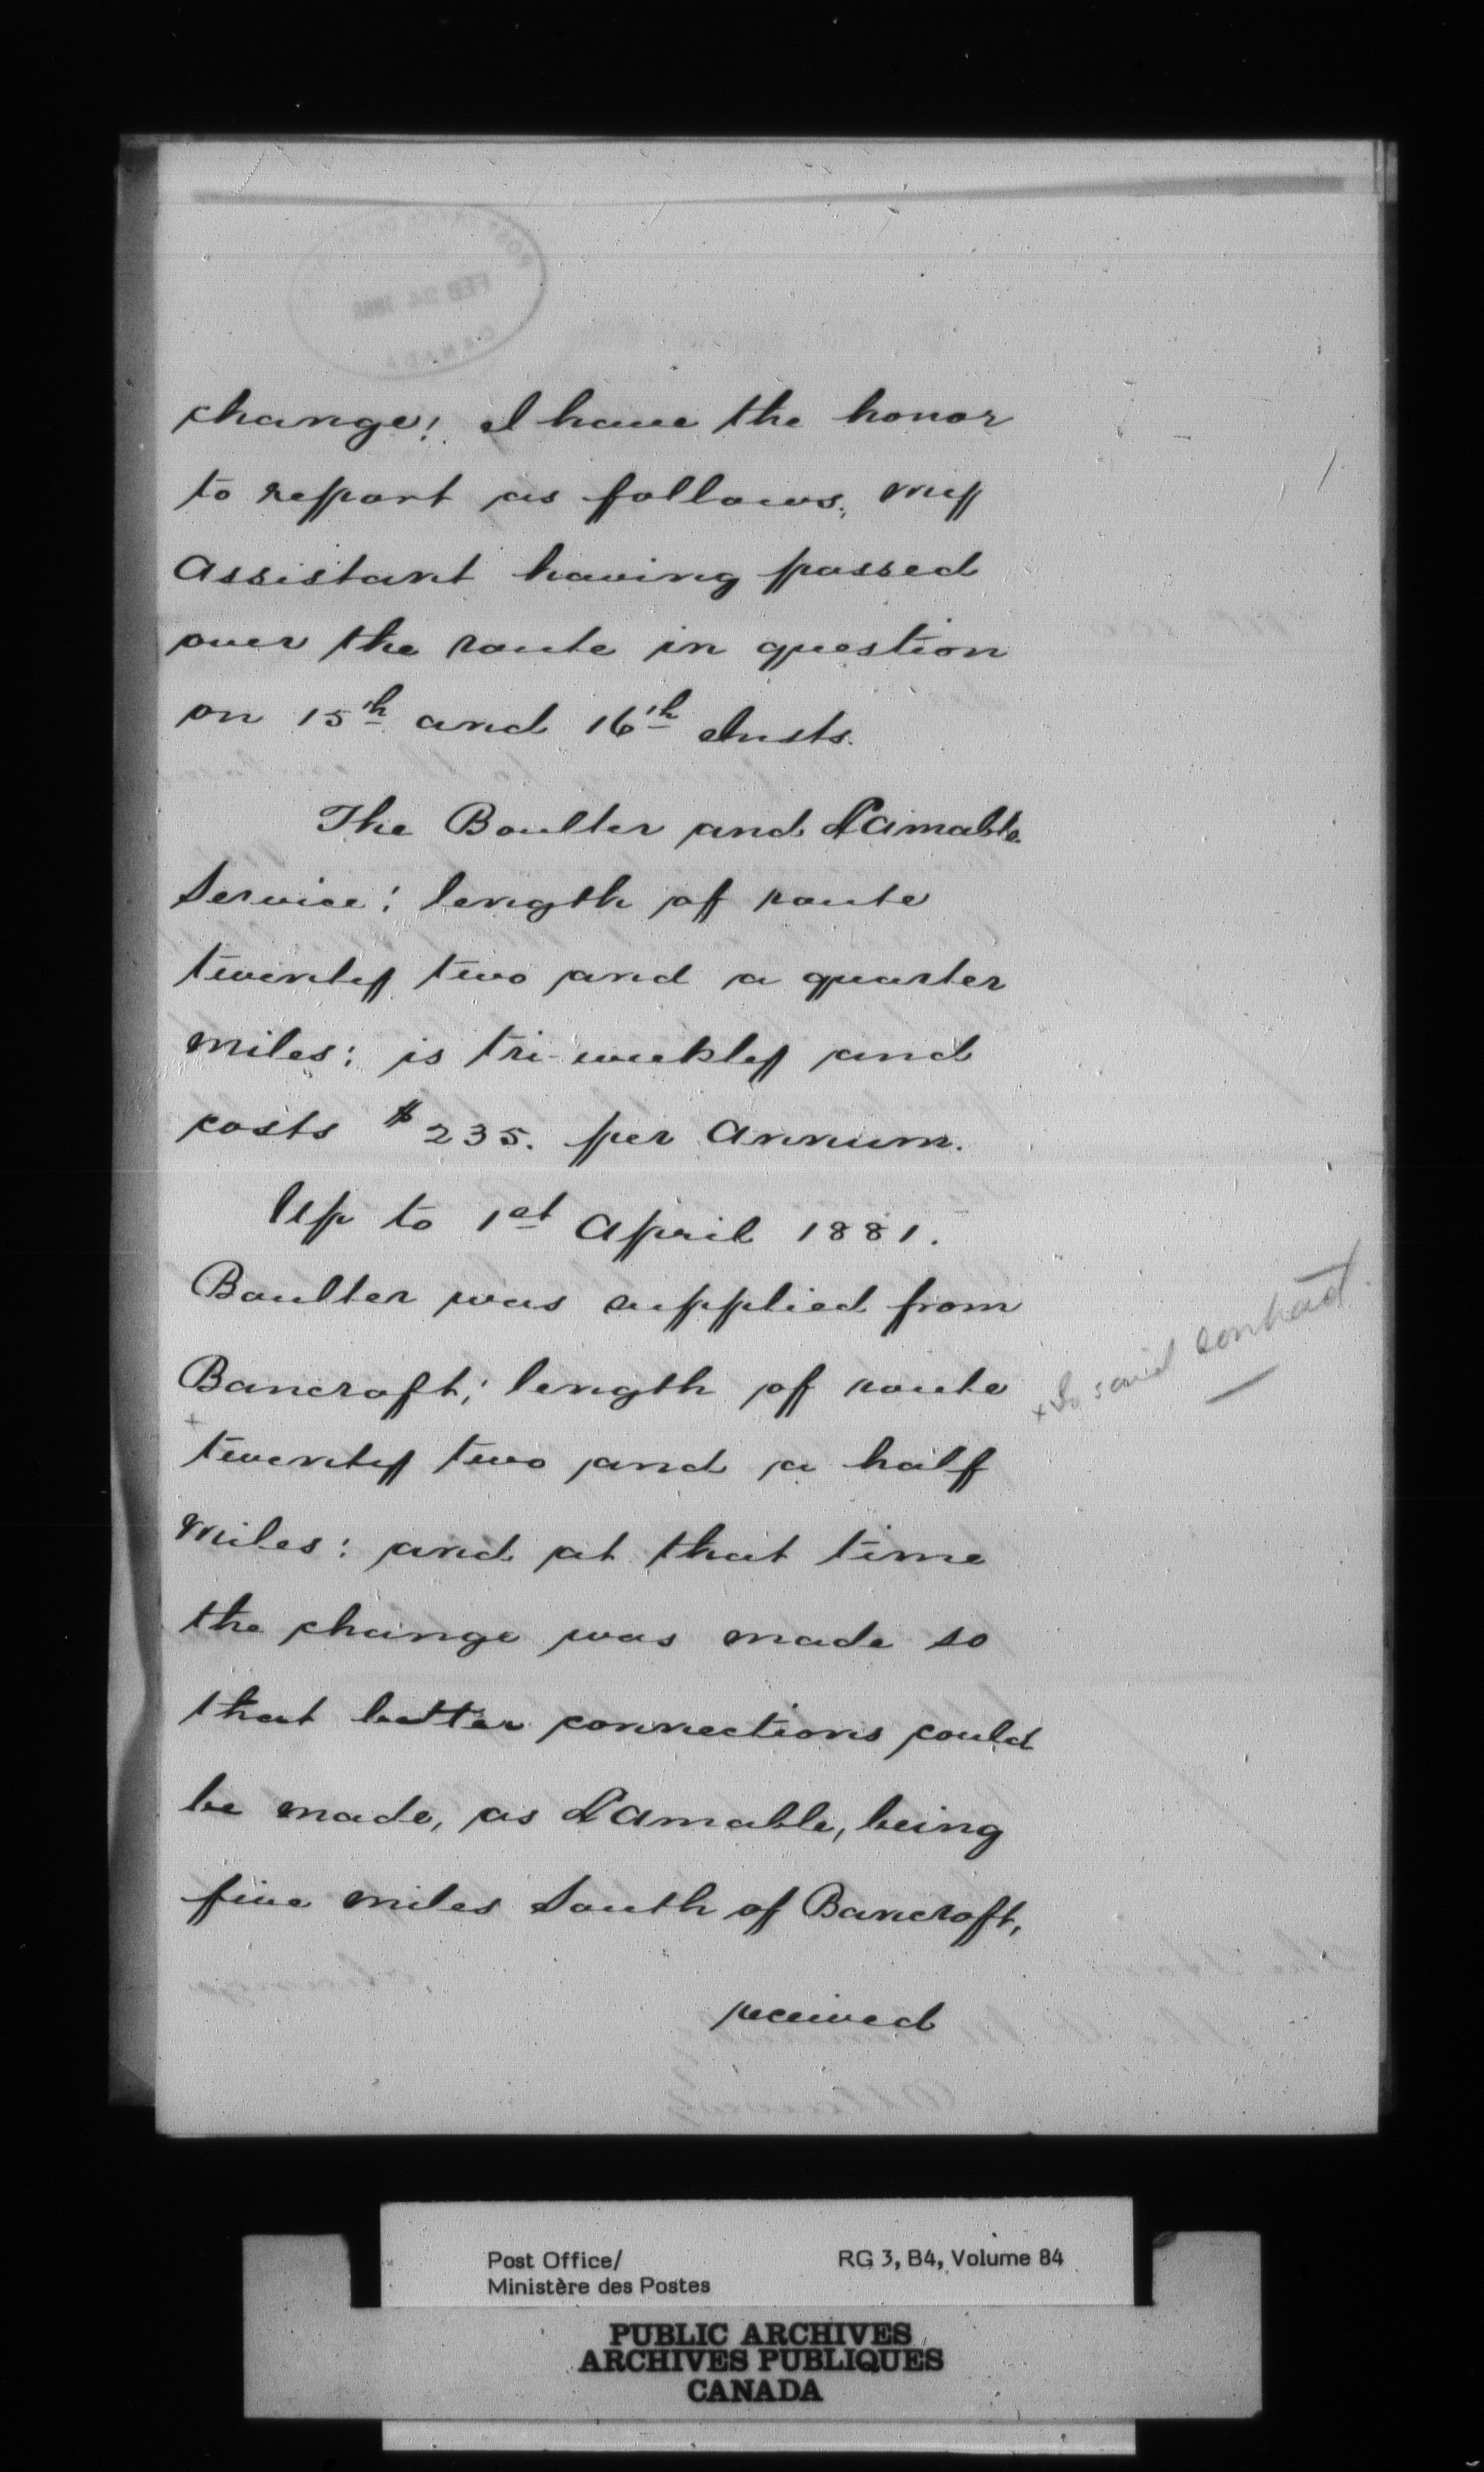 change: I have the honor
to report as follows, my
Assistant having passed
over the route in question
on 15th and 16th Insts.
The Boulter and L'Amable
Service: length of route
twenty two and a quarter
miles: is tri-weekly and
costs $235. per Annum.
Up to 1st April 1881.
Boulter was supplied from
Bancroft; length of route
+
twenty two and a half
miles: and at that time
the change was made so
that better connections could
be made, as L'Amable, being
five miles South of Bancroft,
received
+ contract
Post Office/
Ministère des Postes
RG 3, B4, Volume 84
PUBLIC ARCHIVES
ARCHIVES PUBLIQUES
CANADA